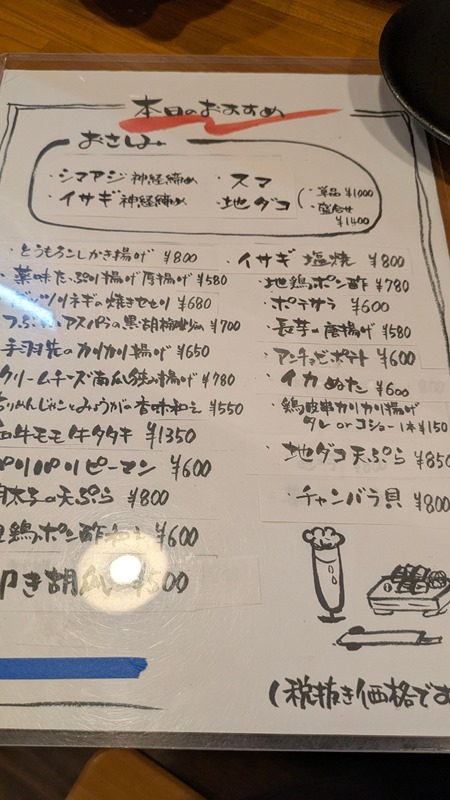 本日のおすすめ
おさしみ
・シマアジ神経締め
・イサギ神経締め
・スマ
・地ダコ
(・単品 ¥1000
・盛合せ ¥1400
・とうもろこしかき揚げ ¥800
・薬味たっぷり揚げ厚揚げ ¥580
ネギの焼きせもり ¥680
アスパラの黒胡椒 ¥700
手羽先のカリカリ揚げ ¥650
クリームチーズ南瓜挟み揚げ ¥780
りめんじゃことみょうがの香味和え ¥550
和牛モモ牛タタキ ¥1350
パリパリピーマン ¥600
明太子の天ぷら ¥800
鶏ポン酢和え ¥600
叩き胡瓜 ¥500
・イサギ 塩焼 ¥800
・地鶏ポン酢 ¥780
・ポテサラ ¥600
・長芋唐揚げ ¥580
・アンチョビポテト ¥600
・イカぬた ¥600
・鶏皮串カリカリ揚げ
タレ orコショー 1本¥150
・地ダコ天ぷら ¥850
・チャンバラ貝 ¥800
(税抜き価格です